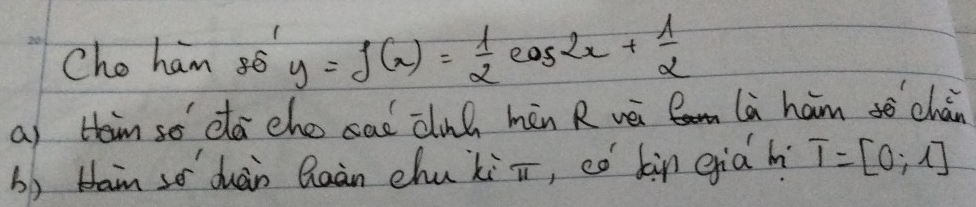 Cho hàm số y = f(x) = 1/2 cos2x + 1/2
a) Hàm số đã cho xác định trên R và là hàm số chẵn
b) Hàm số tuần hoàn chu kì π, có tập giá trị T = [0; 1]